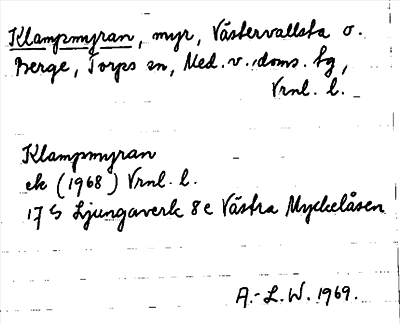 Klampmyran, myr, Västervallsta o.
Berge, Torps sn, Med. v. doms. tg,
Vrnl. l.
Klampmyran
ek (1968) Vrnl. l.
17 G Ljungaverk 8e Västra Myckelåsen
A.-L.W. 1969.